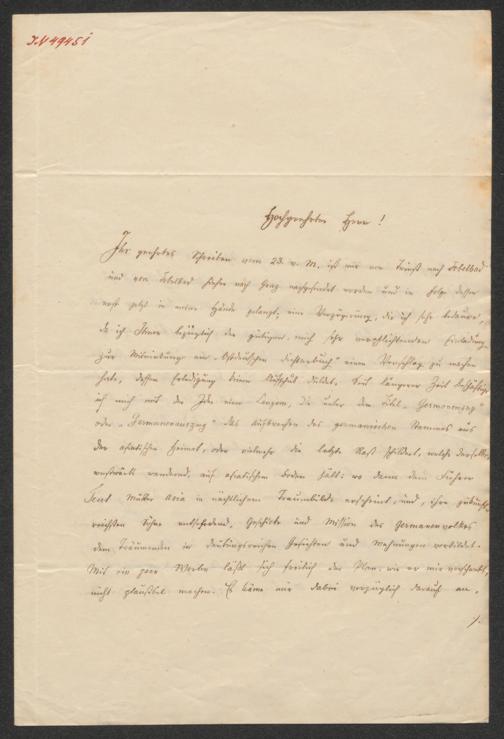 J.N 49451
Hochgeehrter Herr!
Ihr geehrtes Schreiben vom 23. v. M. ist mir von Triest nach Tobelbad
und von Tobelbad hieher nach Graz nachgesendet worden und in Folge dessen
erst jetzt in meine Hände gelangt, eine Verzögerung, die ich sehr bedaure,
da ich Ihnen bezüglich der gütigen, mich sehr verpflichtenden Einladung
zur Mitwirkung am Ostdeutschen Dichterbuch" einen Vorschlag zu machen
hätte, dessen Erledigung keinen Aufschub duldet. Seit längerer Zeit beschäftige
ich mich mit der Idee eines Canzone, die unter dem Titel „Germanenzug"
oder „Germanenauszug" das Aufbrechen des germanischen Stammes aus
der asiatischen Heimat, oder vielmehr die letzte Rast schildert, welche derselbe,
westwärts wandernd, auf asiatischem Boden hält: wo dann dem Führer
Teut Mutter Asia in nächtlichem Traumbilde erscheint, und, ihre
Söhne entsendend, Geschicke und Mission des Germanenvolkes
dem Träumenden in deutungsreichen Gesichten und Mahnungen vorbildet.
Mit ein paar Worten läßt sich freilich der Plan, wie er mir vorschwebt,
nicht plausibel machen. Es käme mir dabei vorzüglich darauf an,